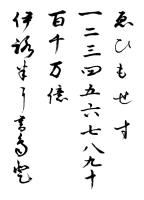 ゑひもせす
一二三四五六七八九十
百千万億
伊路半